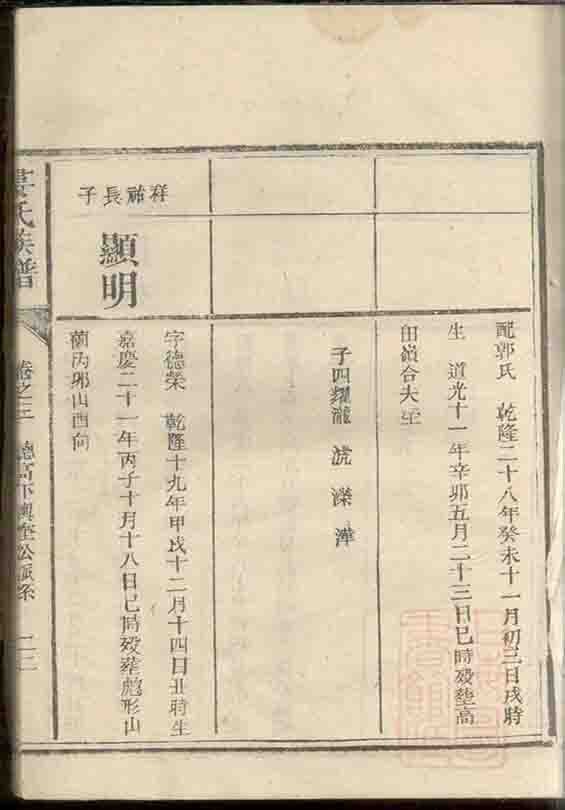 配郭氏 乾隆二十八年癸未十一月初三日戌時
生 道光十一年辛卯五月二十三日巳時殁塟高
田嶺合夫塋
子四耀瀧 淲 濼 潷
祥長子
顯明
字德榮 乾隆十九年甲戌十二月十四日丑時生
嘉慶二十一年丙子十月十八日巳時殁葬彪形山
艮山酉向
氏族譜
卷之三